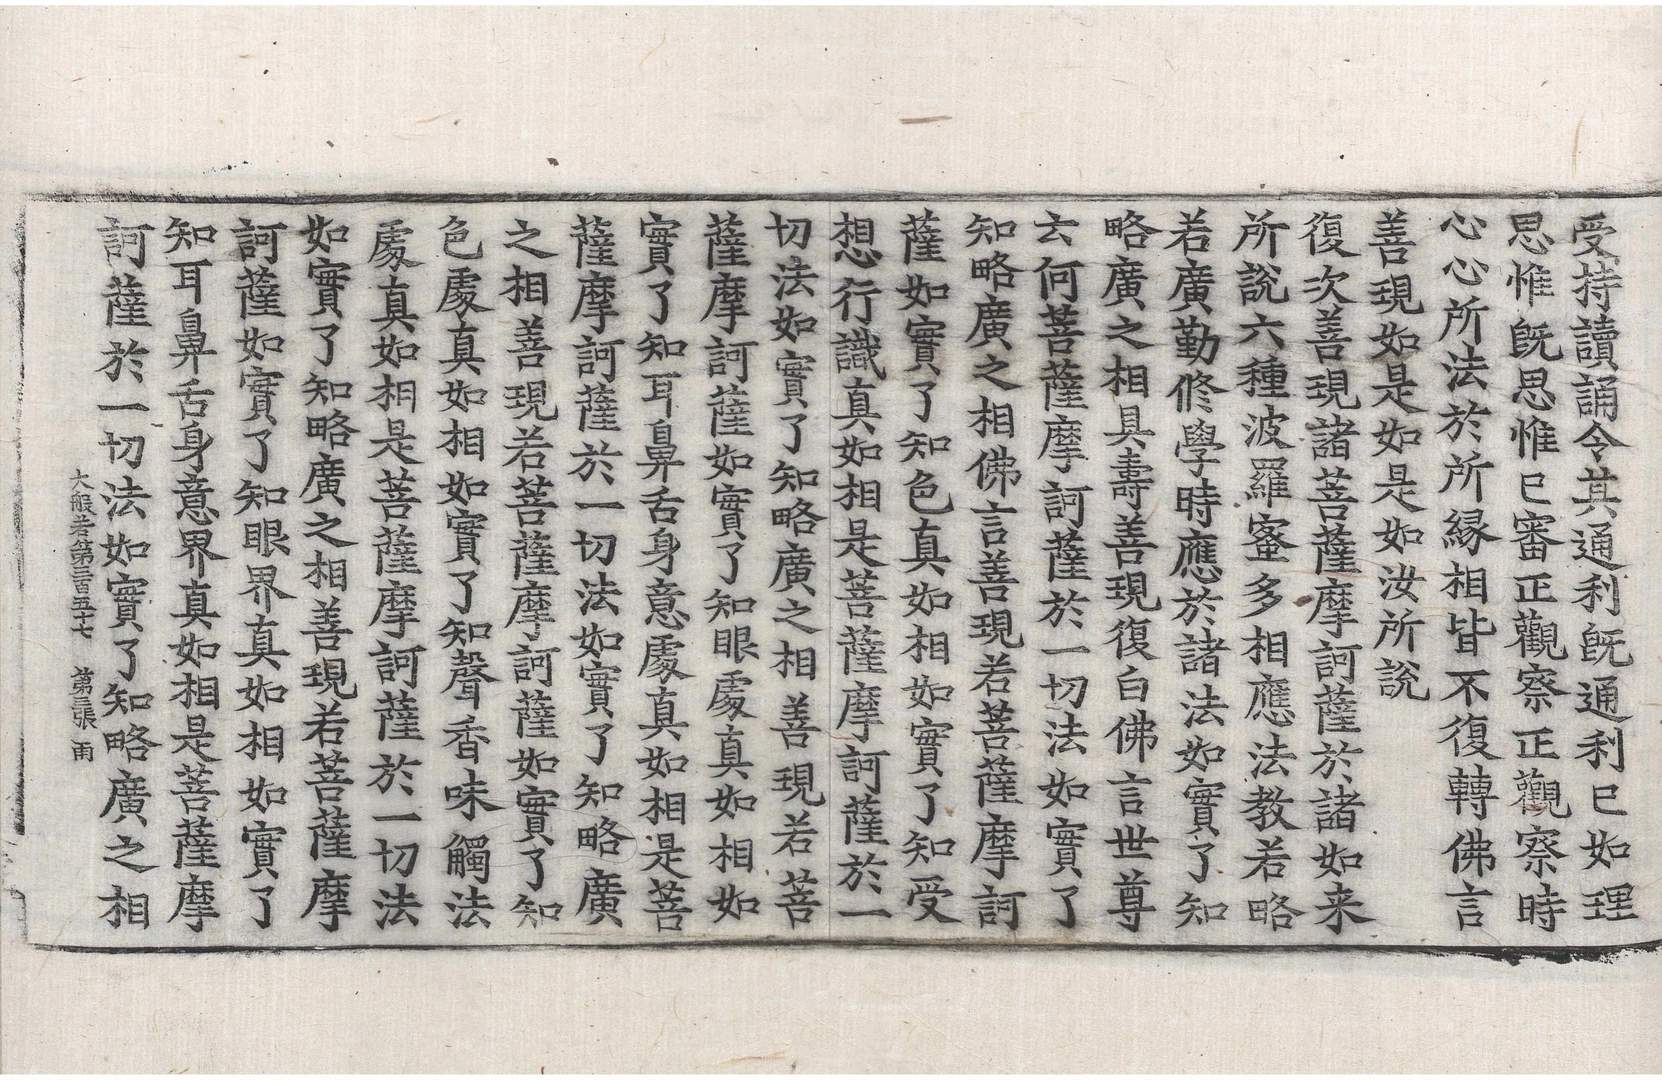 受持讀誦令其通利旣通利已如理
思惟旣思惟已審正觀察正觀察時
心心所法於所緣相皆不復轉佛言
善現如是如是如汝所說
復次善現諸菩薩摩訶薩於諸如来
所說六種波羅蜜多相應法教若略
若廣勤修學時應於諸法如實了知
略廣之相具壽善現復白佛言世尊
云何菩薩摩訶薩於一切法如實了
知略廣之相佛言善現若菩薩摩訶
薩如實了知色真如相如實了知受
想行識真如相是菩薩摩訶薩於一
切法如實了知略廣之相善現若菩
薩摩訶薩如實了知眼處真如相如
實了知耳鼻舌身意處真如相是菩
薩摩訶薩於一切法如實了知略廣
之相善現若菩薩摩訶薩如實了知
色處真如相如實了知聲香味觸法
處真如相是菩薩摩訶薩於一切法
如實了知略廣之相善現若菩薩摩
訶薩如實了知眼界真如相如實了
知耳鼻舌身意界真如相是菩薩摩
訶薩於一切法如實了知略廣之相
大般若第三百五十七 第三張 雨